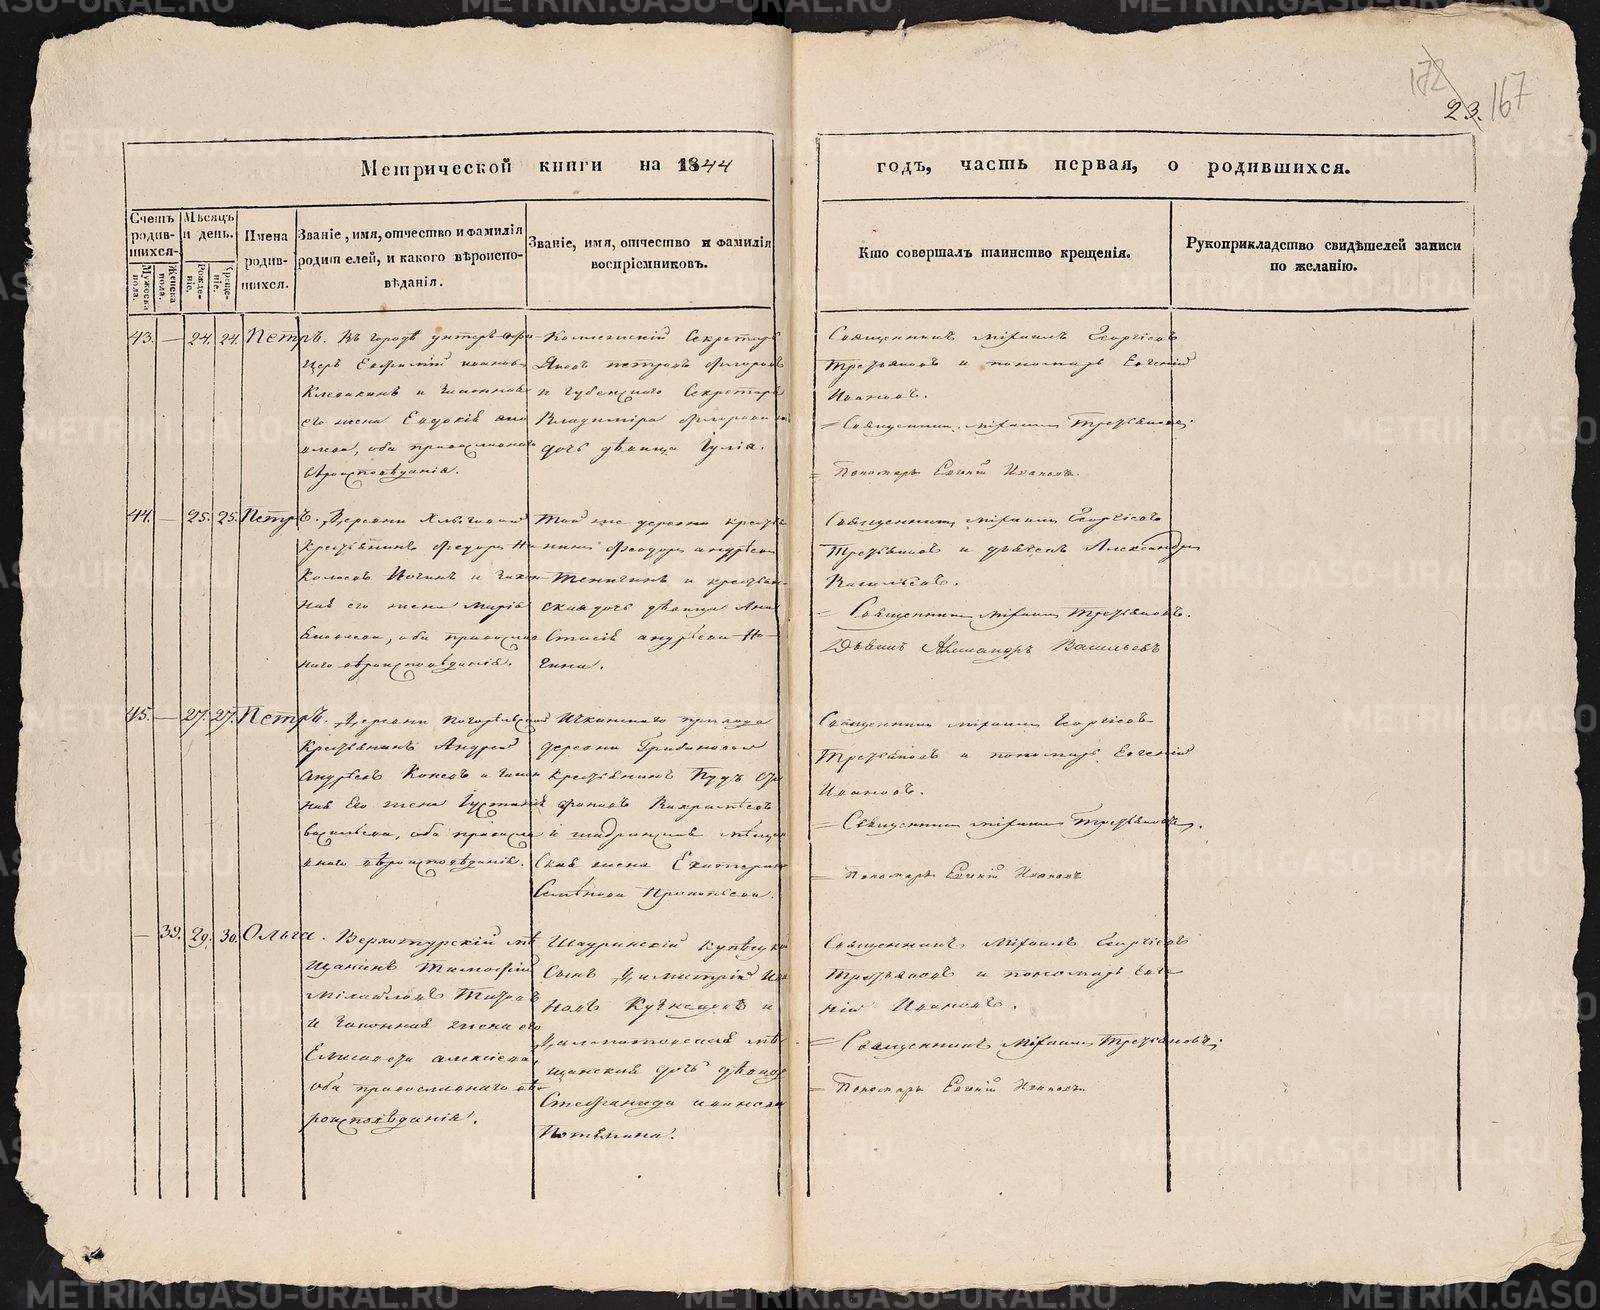 172
23. 167
Метрической книги на 1844
годъ, часть первая, о родившихся.
Счетъ родив-шихся.
Мужеска пола.
Женска пола.
Мѣсяцъ и день.
Рожде-ніе.
Креще-ніе.
Имена родив-шихся.
Званіе, имя, отчество и фамилія
родителей, и какого вѣроиспо-
вѣданія.
Званіе, имя, отчество и фамилія
воспріемниковъ.
Кто совершалъ таинство крещенія.
Рукоприкладство свидѣтелей записи
по желанію.
43. — 24. 24. Петръ.
Въ городѣ унтеръ-офи-
церъ Евфимій
и законная
его жена Евдокія
оба православнаго
вѣроисповѣданія.
Коллежскій Секретарь
Яковъ Петровъ
и Губенского Секретаря
Владиміра
дочь дѣвица Іулія.
Священникъ Міхаилъ Георгіевъ
Третьяковъ и пономарь Евгеній
Ивановъ.
= Священникъ Міхаилъ Третьяковъ.
= Пономарь Евгеній Ивановъ.
44. — 25. 25. Петръ.
Деревни
Крестьянинъ Феодоръ Ни
колаевъ и закон-
ная его жена Марія
оба православ
наго вѣроисповѣданія.
Той же деревни кресть
нинъ Феодоръ Андрѣевъ
и крестьян-
ская дочь дѣвица Ана
стасія Андрѣева Но-
гина.
Священникъ Міхаилъ Георгіевъ
Третьяковъ и дьячекъ Александръ
Васильевъ.
= Священникъ Міхаилъ Третьяковъ.
Дьячекъ Александръ Васильевъ
45. — 27. 27. Петръ.
Деревни
Крестьянинъ Андрей
Андрѣевъ и закон
ная его жена Іустинія
Васильева, оба правосла
внаго вѣроисповѣданія.
прихода
деревни
крестьянинъ
и шадринская мѣщан
ская жена Екатерина
Семѣнова Прокопьева.
Священникъ Міхаилъ Георгіевъ
Третьяковъ и пономарь Евгеній
Ивановъ.
= Священникъ Міхаилъ Третьяковъ.
= Пономарь Евгеній Ивановъ
— 39. 29. 30. Ольга.
Верхотурскій мѣ
щанинъ Тимофѣй
Міхайловъ Титовъ
и законная жена его
Елисавета Алексіева,
оба православнаго вѣ-
роисповѣданія.
Шадринскій Купецкій
Сынъ Димитрій Ива
новъ и
Далматовская мѣ-
щанская дочь дѣвица
Стефанида Иванова
Потѣмина.
Священникъ Міхаилъ Георгіевъ
Третьяковъ и пономарь Евге
ній Ивановъ.
= Священникъ Міхаилъ Третьяковъ.
= Пономарь Евгеній Ивановъ.
METRIKI.GASO-URAL.RU